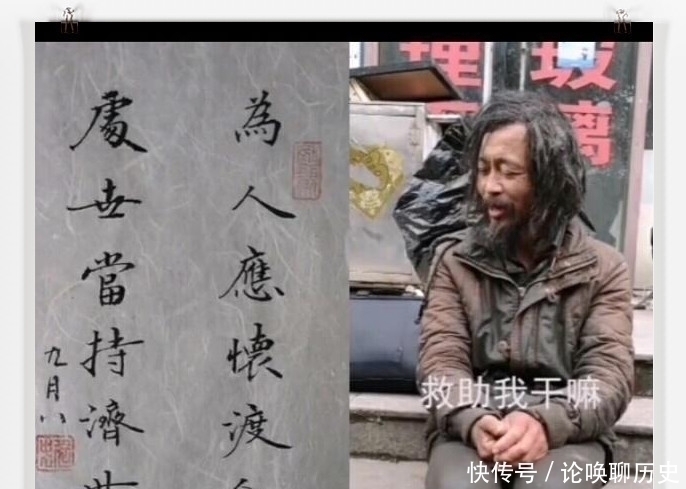 為人應懷渡
處世當持濟
九月八
玻璃
救助我干嘛
快传号 / 论唤聊历史